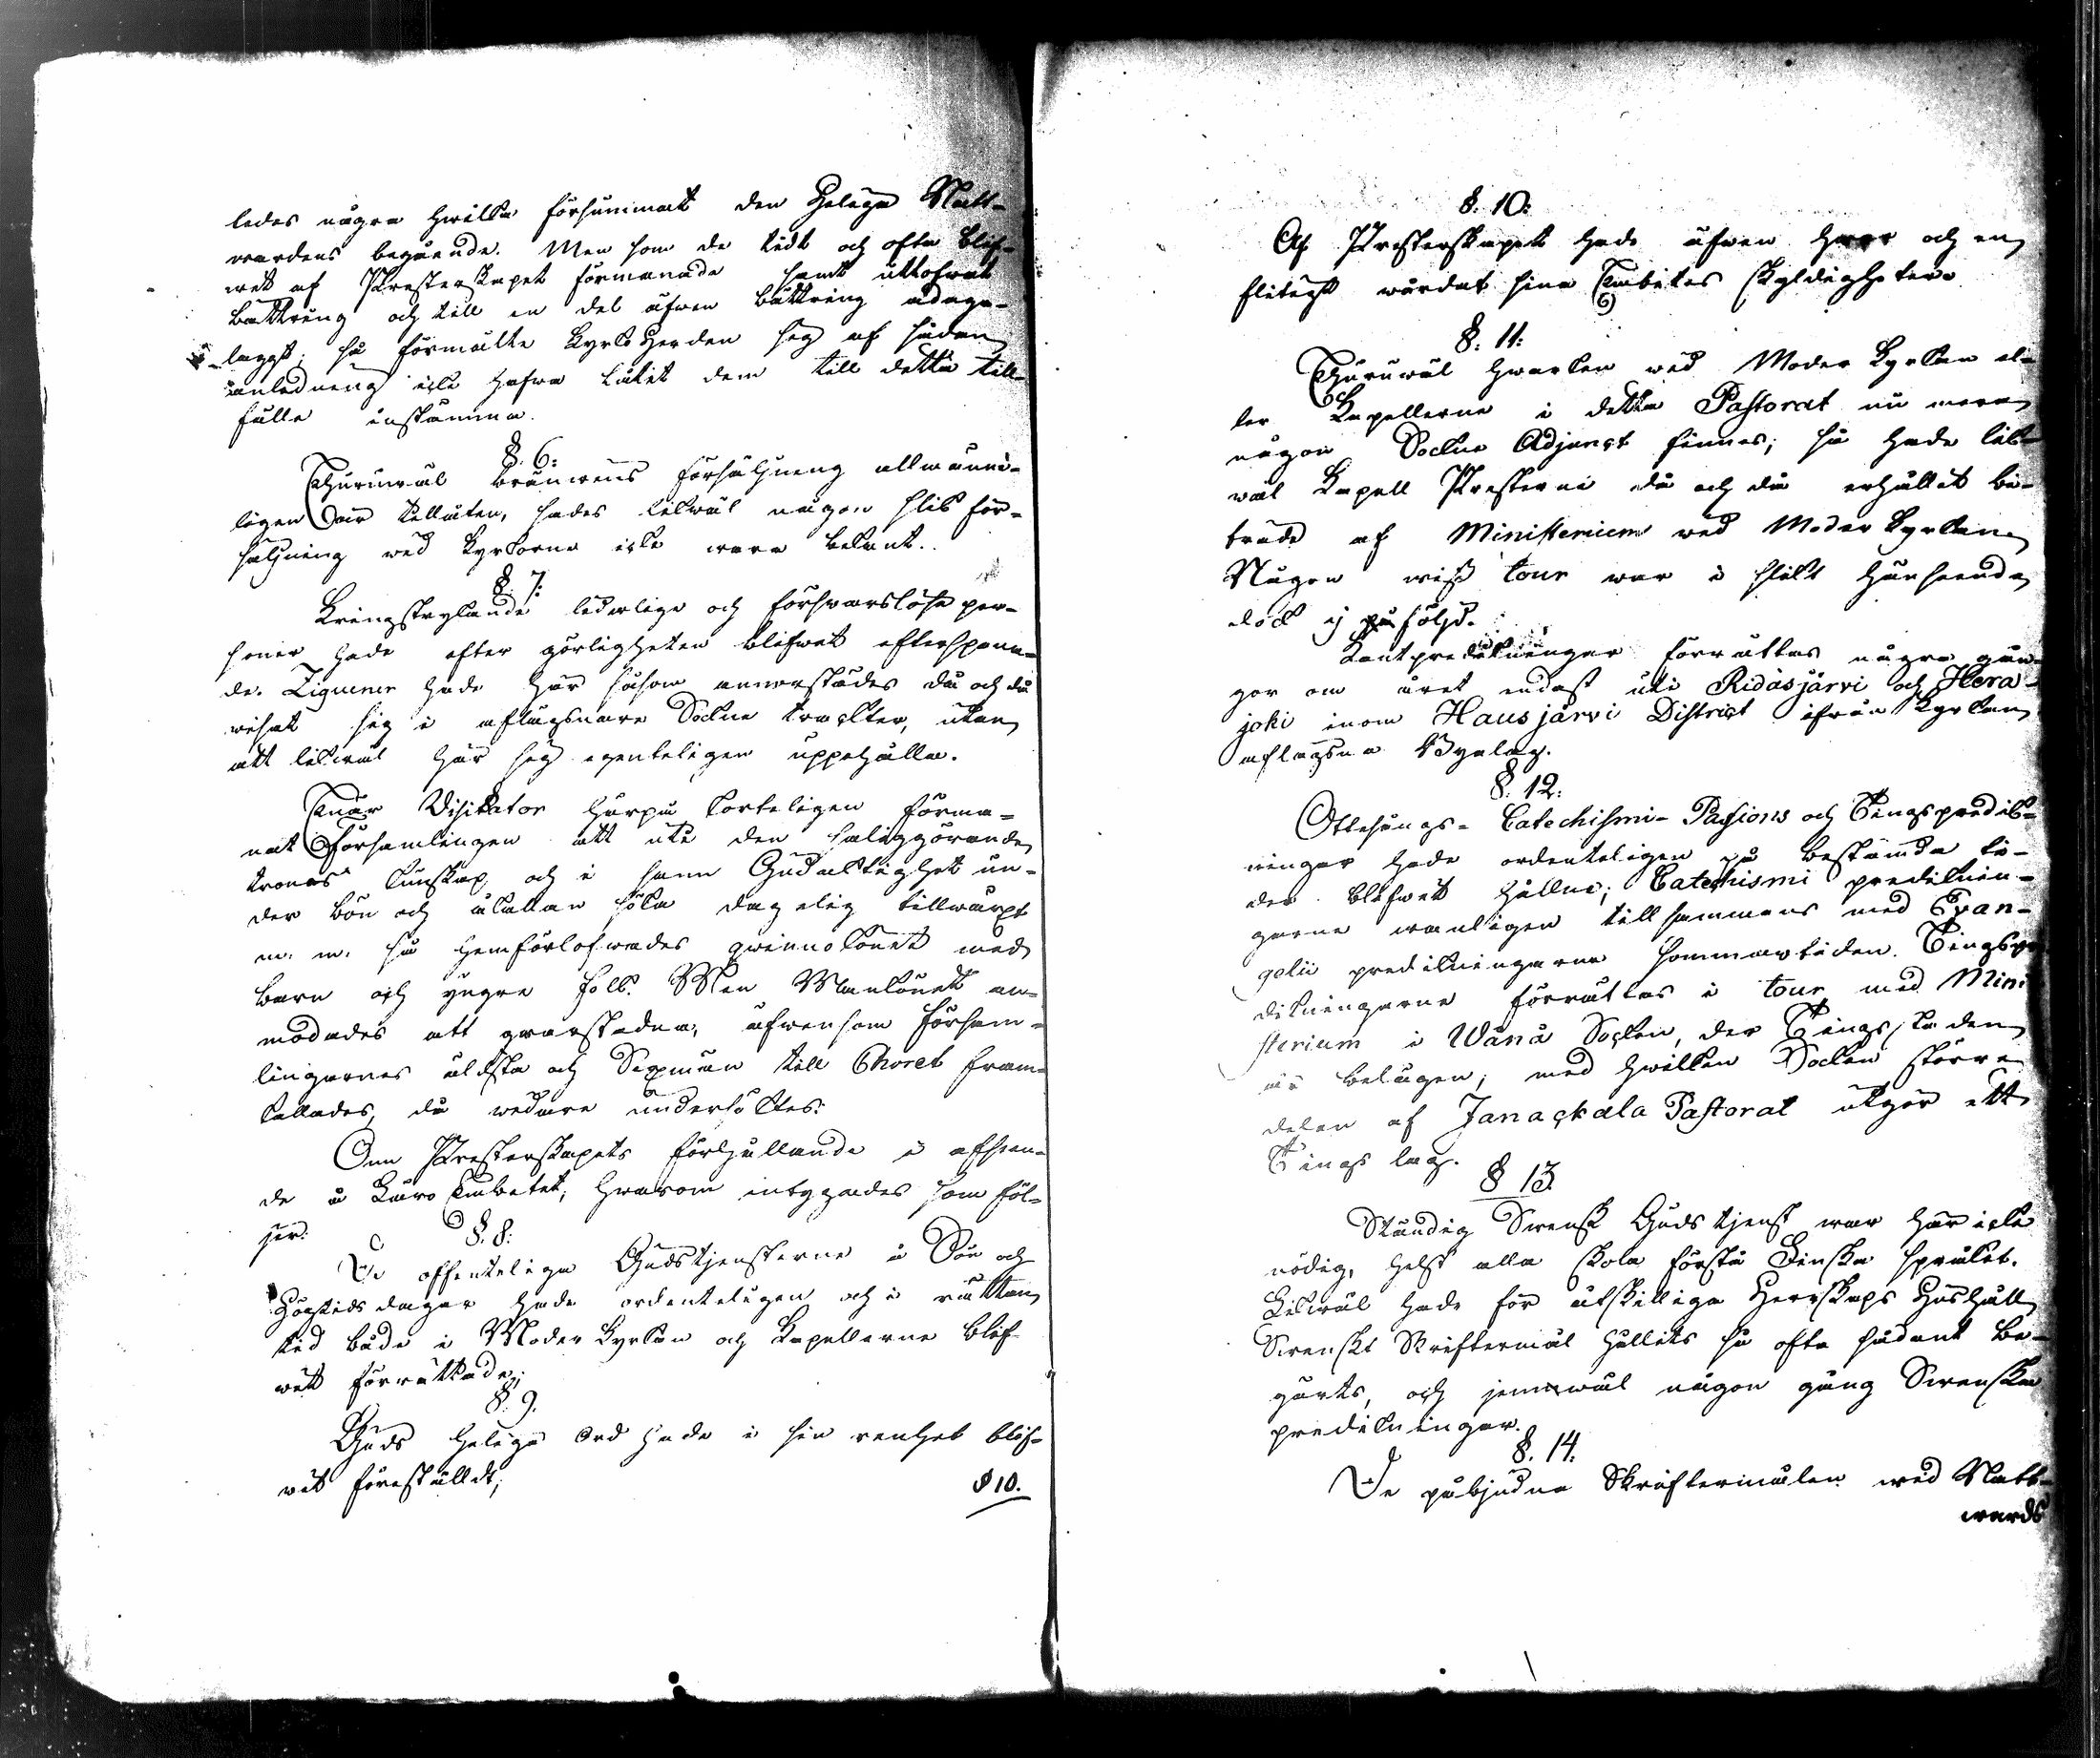 ledes några hwilka försummat den Heliga Natt-
wardens begående. Men som de tidt och ofta blif-
wit af Presterskapet förmanade samt utlofwat
bättring och till en del äfwen bättring ådaga-
lagt; så förmälte KyrkoHerden sig af sådan
anledning icke hafwa låtit dem till detta till-
fälle instämma.
§. 6:
Ehuruwäl bränwins försäljning allmänne-
ligen är tillåten, sades likwäl någon slik för-
säljning wid kyrkorne icke wara bekant.
§. 7:
Kringstrykande liderlige och försvarslöse per-
soner hade efter görligheten blifwit efterspana-
de. Ziguener hade här såsom annorstädes då och då
wisat sig i aflägsnare Sockne trackter, utan
att likwäl här sig egenteligen uppehålla.
Enär Visitator härpå korteligen förma-
nat Församlingen att uti den saliggörande
trones kunskap och i sann Gudaktighet un-
der bön och åkallan söka dagelig tillwäxt
m. m. så hemförlofwades qwinnokönet med
barn och yngre folk. Men Mankönet an-
modades att qwarstadna, äfwensom försam-
lingarnes äldsta och Sexmän till Choret fram-
kallades, då widare undersöktes:
Om Presterskapets förhållande i afseen-
de å Läro Embetet, hwarom intygades som föl-
jer:
§. 8:
De offentelige Gudstjensterne å Sön och
Högtidsdagar hade ordenteligen och i rättan
tid både i Moder Kyrkan och Kapellerne blif-
wit förrättade;
§. 9.
Guds heliga ord hade i sin renhet blif-
wit föreställdt;
§ 10.
§. 10:
Af Presterskapet hade äfwen hwar och en
flitigt wårdat sina Embetes skyldigheter.
§. 11:
Ehuruwäl hwarken wid Moder Kyrkan el-
ler Kapellerne i detta Pastorat nu mera
någon Sockne Adjunct finnes; så hade lik-
wäl Kapell Presterne då och då erhållit bi-
träde af Ministerium wid Moder Kyrkan.
Någon wiss tour war i slikt hänseende
dock ej på följd.
Bönpredikningar förrättas några gån-
gor om året endast uti Ridasjärvi och Hera-
joki inom Hausjärvi District ifrån Kyrkan
aflägsna Byalag.
§. 12:
Ottesångs- Catechismi- Passions och Tingspredik-
ningar hade ordenteligen på bestämda ti-
der blifwit hållne; Catechismi prediknin-
garne wanligen tillsammans med Evan-
gelii predikningarne sommartiden. Tingspre
dikningarne förrättas i tour med Mini
sterium i Wånå Socken, der Tingsstaden
är belägen; med hwilken Socken större
delen af Janackala Pastorat utgör ett
Tings lag.
§ 13.
Ständig Swensk Gudstjenst war här icke
nödig, helst alla skola förstå Finska språket.
Likwäl hade för åtskilliga Herrskaps Hushåll
Swenskt Skriftermål hållits så ofta sådant be-
gärts, och jemwäl någon gång Swenska
predikningar.
§. 14:
De påbjudna Skriftermålen wid Natt-
wards